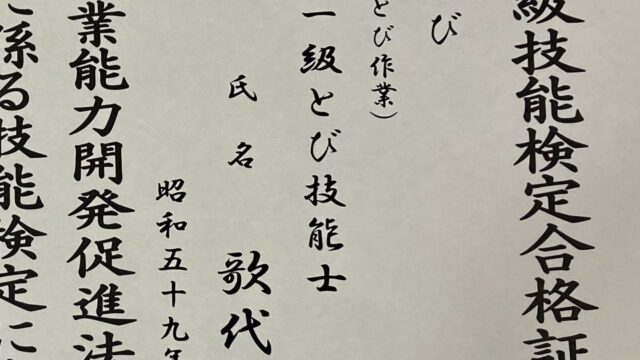 級技能検定合格証
び
とび作業）
一級とび技能士
氏名 歌代
昭和五十九年
業能力開発促進法
に係る技能検定に